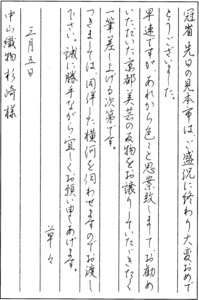 冠省 先日の見本市は、ご盛況に終わり大変おめで
とうございました。
早速ですが、あれから色々と思案致しましてお勧め
いただいた京都美芸の反物をお譲りしていただきたく
一筆差し上げる次第です。
つきましては同伴した横河を伺わせますのでお渡し
下さい。誠に勝手ながら宜しくお願い申しあげます。
草々
三月五日
中山織物 杉崎様